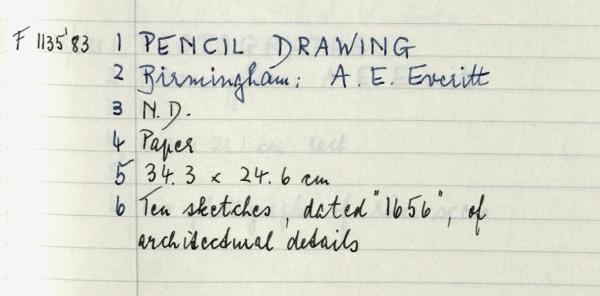 F 1135'83 1 PENCIL DRAWING
2 Birmingham: A. E. Everitt
3 N.D.
4 Paper
5 34.3 x 24.6 cm
6 Ten sketches, dated "1656", of
architectural details